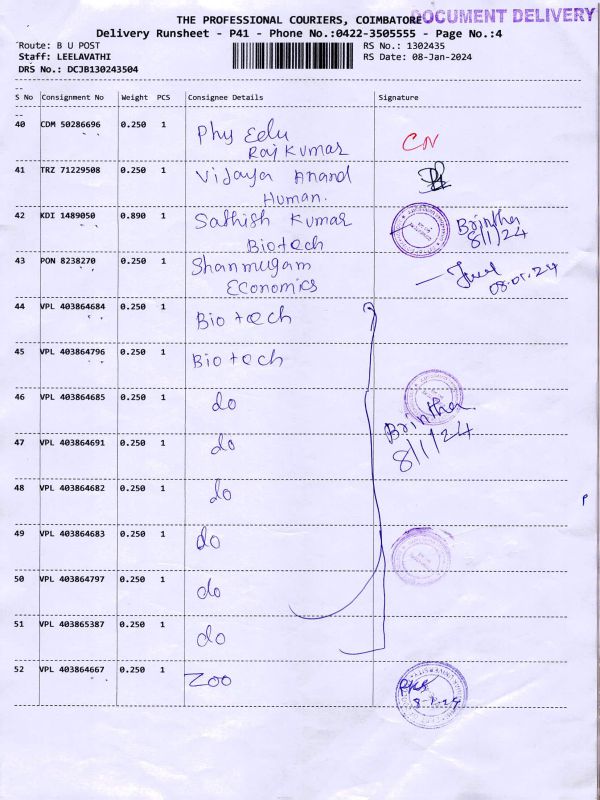 THE PROFESSIONAL COURIERS, COIMBATORE
DOCUMENT DELIVERY
Delivery Runsheet - P41 - Phone No.:0422-3505555 - Page No.:4
Route: B U POST
RS No.: 1302435
Staff: LEELAVATHI
RS Date: 08-Jan-2024
DRS No.: DCJB130243504
S No Consignment No Weight PCS Consignee Details Signature
40 CDM 50286696 0.250 1 Phy Edu
Raj Kumar CN
41 TRZ 71229508 0.250 1 Vijaya Anand
Human.
42 KDI 1489050 0.890 1 Sathish Kumar Brintha
Biotech 8/1/24
43 PON 8238270 0.250 1 Shanmugam
Economics 08.01.24
44 VPL 403864684 0.250 1 Biotech
45 VPL 403864796 0.250 1 Biotech
46 VPL 403864685 0.250 1 do Brintha
47 VPL 403864691 0.250 1 do 8/1/24
48 VPL 403864682 0.250 1 do
P
49 VPL 403864683 0.250 1 do
50 VPL 403864797 0.250 1 do
51 VPL 403865387 0.250 1 do
52 VPL 403864667 0.250 1 Zoo
8-1-24